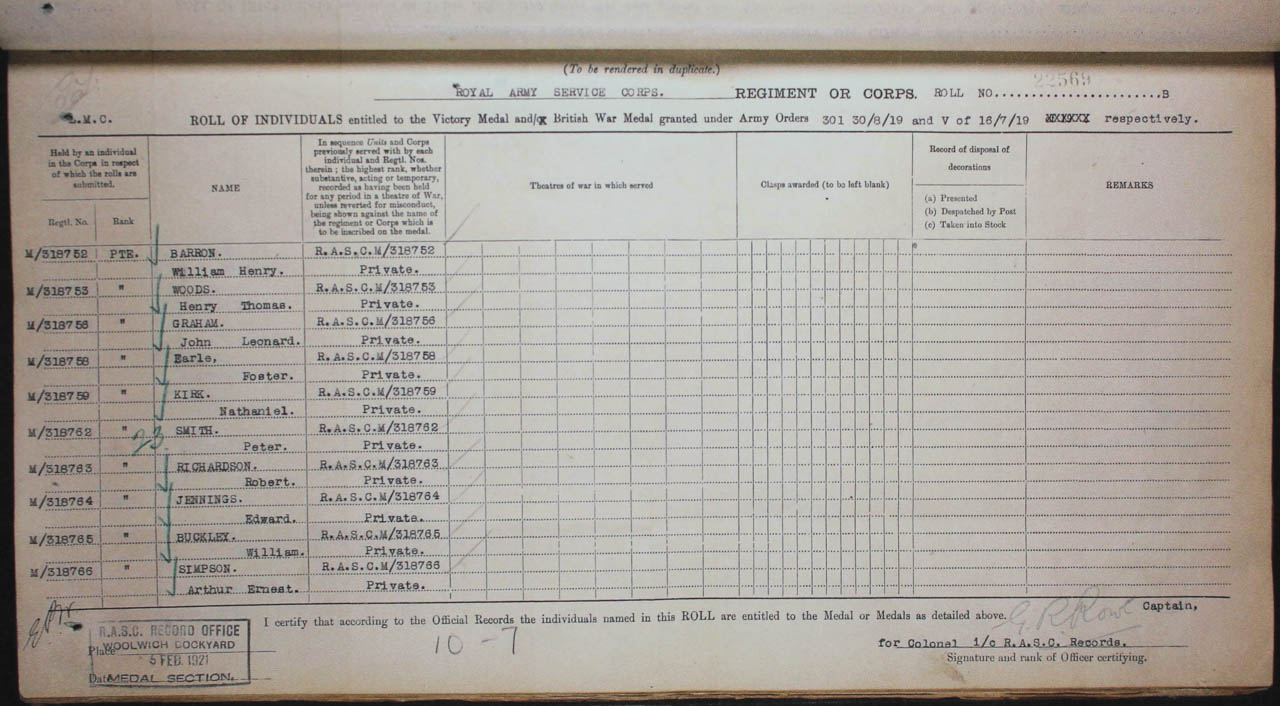 (To be rendered in duplicate.)
22569
ROYAL ARMY SERVICE CORPS. REGIMENT OR CORPS. ROLL NO.......................B
E.M.C.
ROLL OF INDIVIDUALS entitled to the Victory Medal and/or British War Medal granted under Army Orders 301 30/8/19 and V of 16/7/19 respectively.
Held by an individual
in the Corps in respect
of which the rolls are
submitted.
Regtl. No. Rank
NAME
In sequence Units and Corps
previously served with by each
individual and Regtl. Nos.
therein; the highest rank, whether
substantive, acting or temporary,
recorded as having been held
for any period in a theatre of War,
unless reverted for misconduct,
being shown against the name of
the regiment or Corps which is
to be inscribed on the medal.
Theatres of war in which served
Clasps awarded (to be left blank)
Record of disposal of
decorations
(a) Presented
(b) Despatched by Post
(c) Taken into Stock
REMARKS
M/318752 PTE. BARRON. R.A.S.C.M/318752
William Henry. Private.
M/318753 " WOODS. R.A.S.C.M/318753
Henry Thomas. Private.
M/318756 " GRAHAM. R.A.S.C.M/318756
John Leonard. Private.
M/318758 " Earle, R.A.S.C.M/318758
Foster. Private.
M/318759 " KIRK. R.A.S.C.M/318759
Nathaniel. Private.
M/318762 " SMITH. R.A.S.C.M/318762
23 Peter. Private.
M/318763 " RICHARDSON. R.A.S.C.M/318763
Robert. Private.
M/318764 " JENNINGS. R.A.S.C.M/318764
Edward. Private.
M/318765 " BUCKLEY. R.A.S.C.M/318765
William. Private.
M/318766 " SIMPSON. R.A.S.C.M/318766
Arthur Ernest. Private.
I certify that according to the Official Records the individuals named in this ROLL are entitled to the Medal or Medals as detailed above.
G.R. Rowe Captain,
R.A.S.C. RECORD OFFICE
Place WOOLWICH DOCKYARD
5 FEB. 1921
Date MEDAL SECTION.
10-7
for Colonel i/c R.A.S.C. Records.
Signature and rank of Officer certifying.